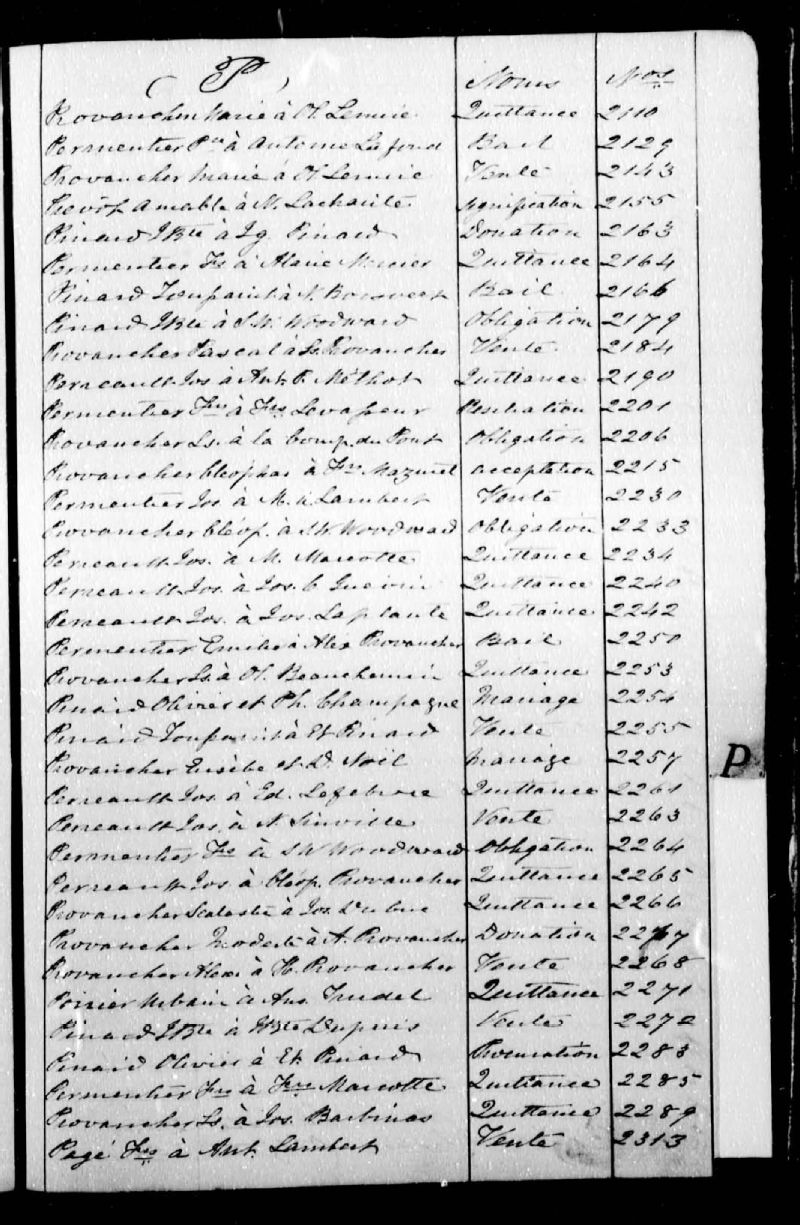 (P) Noms Nos
Provancher Marie à Ol. Lemire Quittance 2110
Permentier à Antoine Lafond Bail 2129
Provancher Marie à Ol Lemire Vente 2143
Prevôt Amable à N. Lachaite signification 2155
Pinard JBte à Ig. Pinard Donation 2163
Permentier à Marie Mercier Quittance 2164
Pinard Toupaint à N. Boisvert Bail 2166
Pinard JBte à S.W. Woodward Obligation 2179
Provancher Pascal à Ls. Provancher Vente 2184
Perreault Jos à Ant. P. Méthot Quittance 2190
Permentier Frs à Frs Levasseur 2201
Provancher Ls. à la Comp. du Pont Obligation 2206
Provancher Cléophas à Frs Mazuret acceptation 2215
Permentier Jos à M. A. Lambert Vente 2230
Provancher Cléop. à S.W. Woodward Obligation 2233
Perreault Jos. à M. Marcotte Quittance 2234
Perreault Jos. à Jos. C Guévin Quittance 2240
Perreault Jos. à Jos. Laplante Quittance 2242
Permentier Emilie à Alex Provancher Bail 2250
Provancher Ls à Ol. Beauchemin Quittance 2253
Pinard Olivier et Ph. Champagne Mariage 2254
Pinard Toupaint à Et Pinard Vente 2255
Provancher Eusèbe et D. Noël Mariage 2257
Perreault Jos. à Ed. Lefebvre Quittance 2261
Perreault Jos. à N. Sinville Vente 2263
Permentier Frs à SW Woodward Obligation 2264
Perreault Jos à Cléop. Provancher Quittance 2265
Provancher à Jos. Dubuc Quittance 2266
Provancher Modeste à A. Provancher Donation 2267
Provancher Alexis à H. Provancher Vente 2268
Poirier Urbain à Ans. Trudel Quittance 2271
Pinard JBte à JBte Dupuis Vente 2272
Pinard Olivier à Et. Pinard Procuration 2283
Permentier Frs à Frs Marcotte Quittance 2285
Provancher Ls. à Jos. Barbinas Quittance 2289
Pagé Frs à Ant. Lambert Vente 2313
P